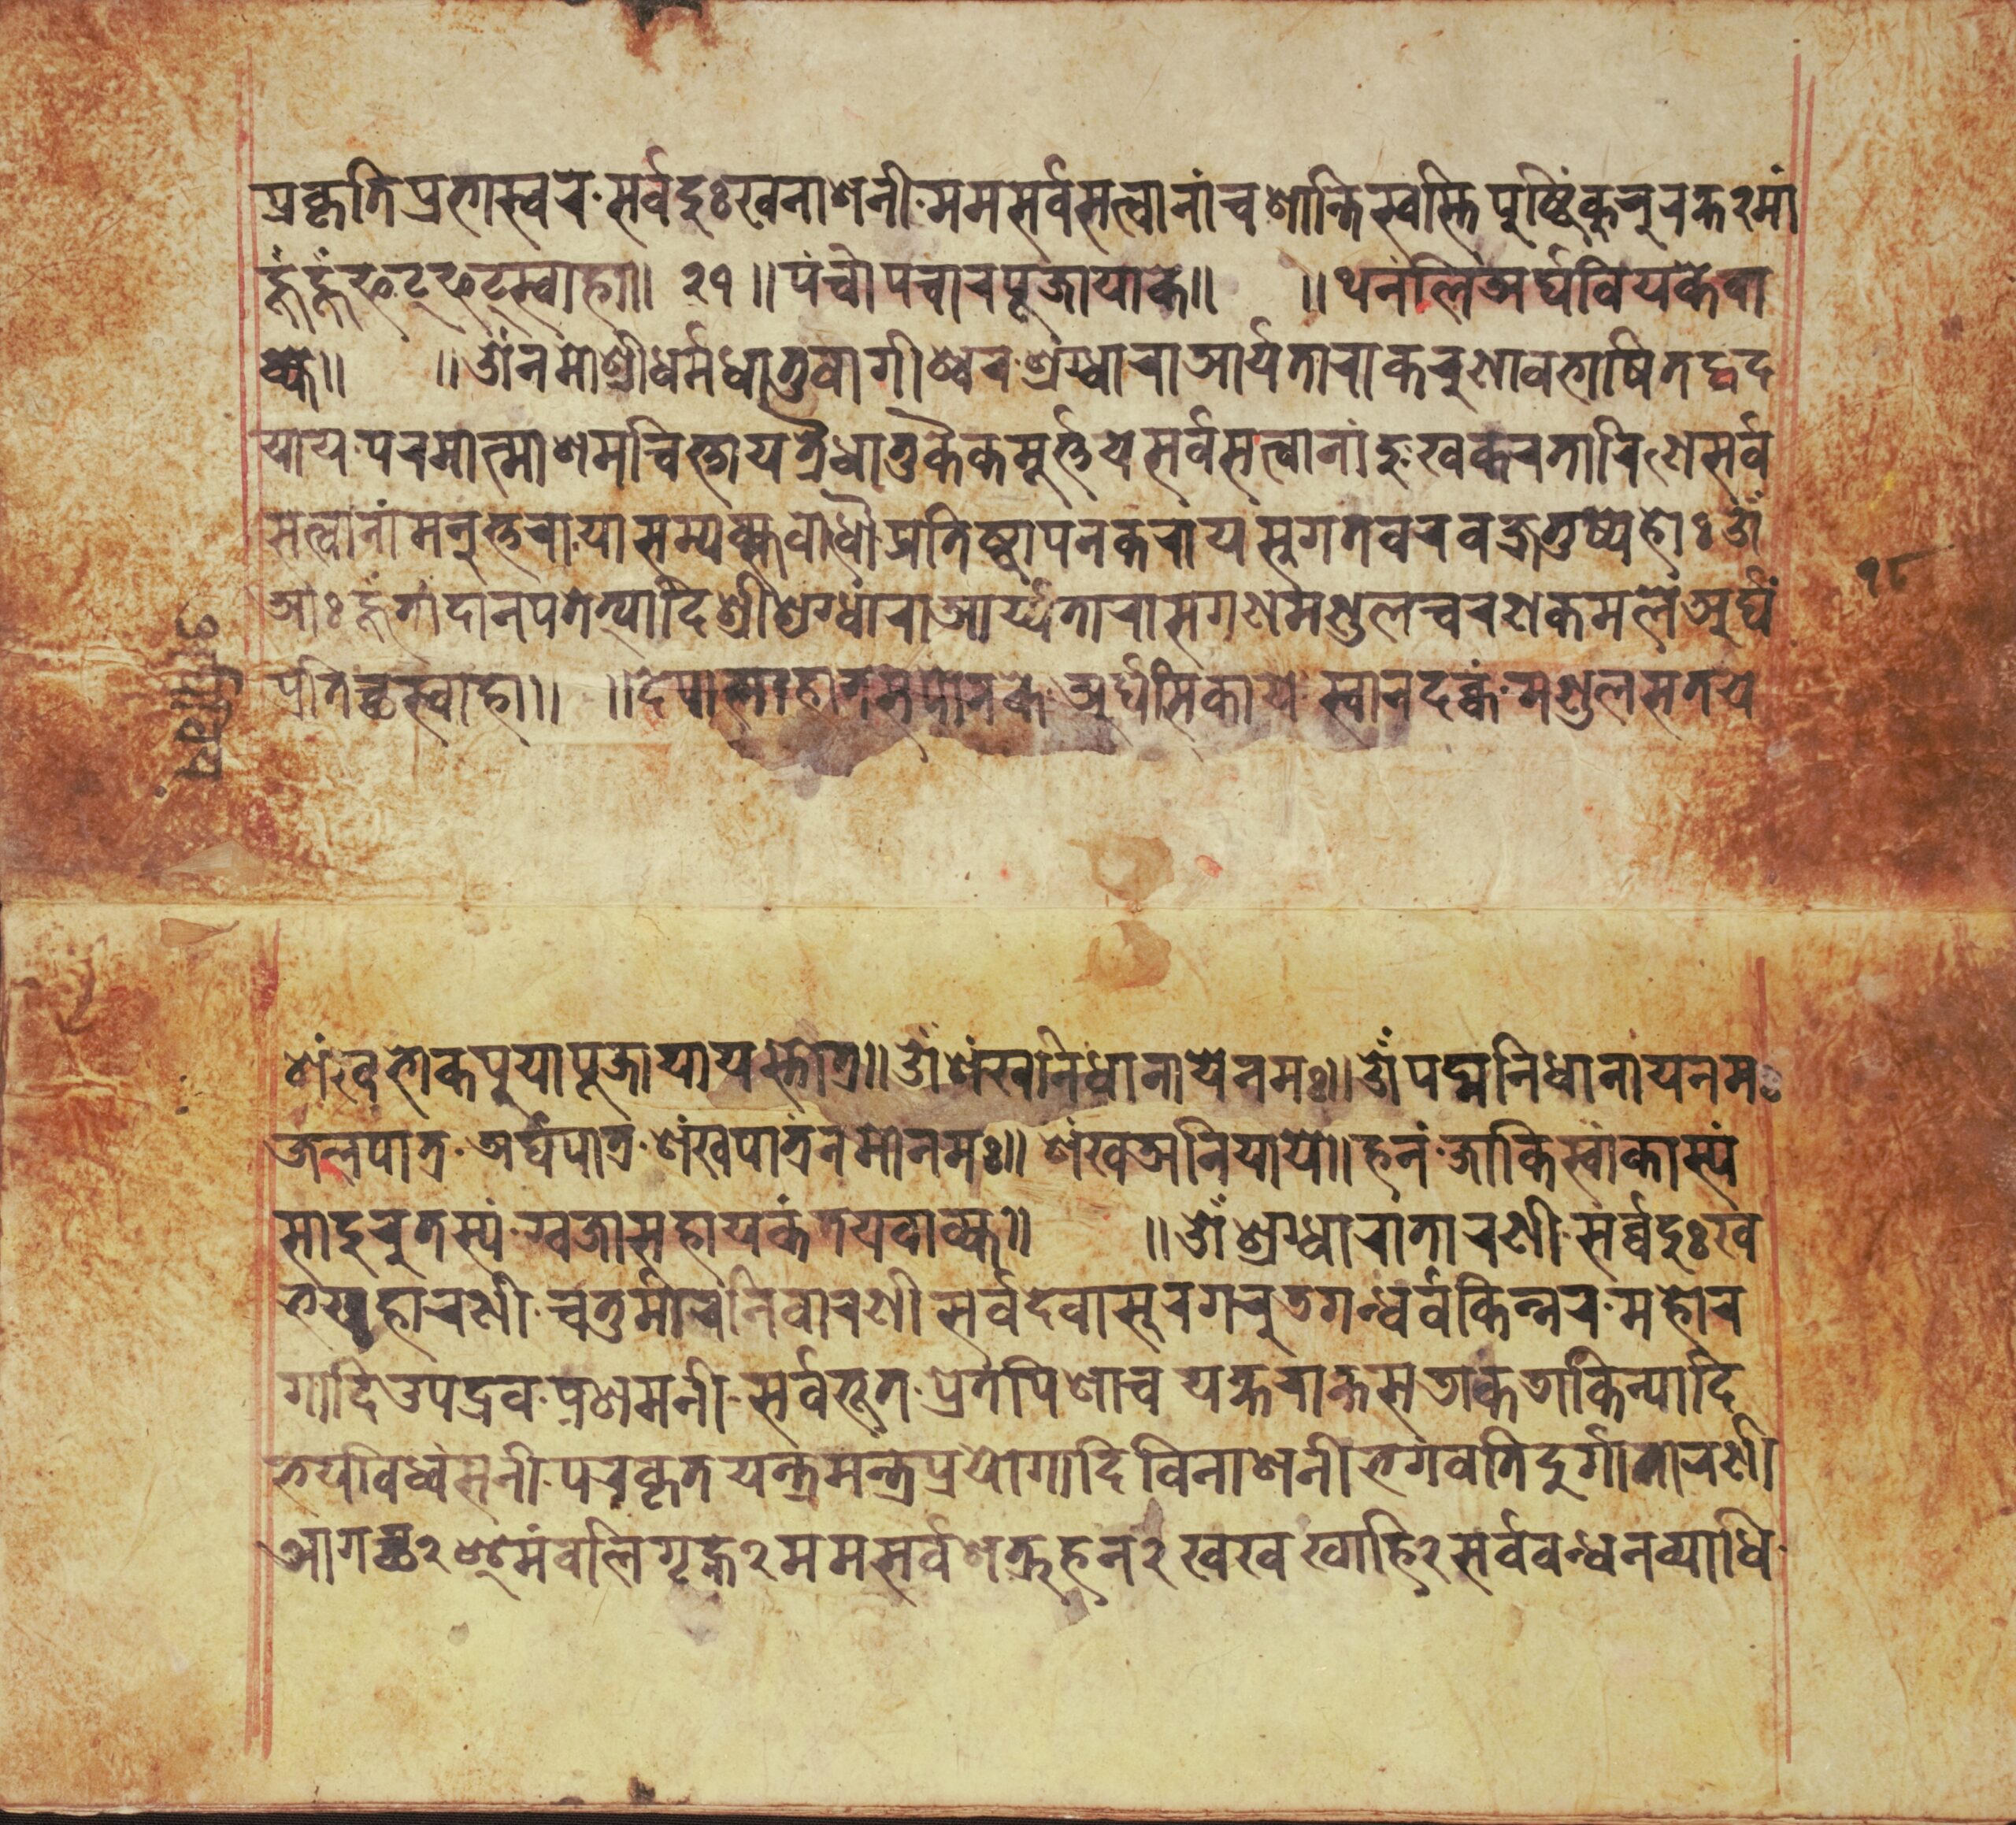 प्रकृतिप्रभास्वर·सर्वदुःखनाशनी·ममसर्वसत्वानांचशान्तिस्वस्तिपुष्टिंकुरुरक्ष२मां
हूंहूंफट्फट्स्वाहा॥ २१ ॥पंचोपचारपूजायाके॥ ॥थनंलिअर्घवियकेवा
क्य॥ ॥ॐनमोश्रीधर्मधातुवागीश्वर·श्रग्धाराआर्यताराकरुणावभाषितहृद
याय·परमात्माशमचित्ताय त्रैधातुकैकमूर्त्तयेसर्वसत्वानांदुःखकरतारिणेसर्व
सत्वानांमनुत्तरायासम्यक्सम्बोधौप्रतिष्ठापनकरायसुगतवरवज्रतुष्यहोः ॐ
आःहूंतांदानपतेत्यादिश्रीश्रग्धाराआर्य्यतारासगणमण्डलचरणकमलेअर्घं
प्रतिच्छस्वाहा॥ ॥ अर्घसिकाये स्वानदकं·मण्डलसतये
शंखहोकपुयापूजायायस्तोत्र॥ॐशंखनिधानायेनमः॥ॐपद्मनिधानायनमः
जलपात्र·अर्घपात्र·शंखपात्रंनमोनमः॥ शंखअनियाये॥हनं·जाकिस्वाकास्यं
सादुरुतस्यं·ग्वजासहायकंतयवाक्य॥ ॥ॐश्रग्धारातारणी·सर्व्वदुःख
भयहारणी·चतुर्मारनिवारणीसर्वदेवासूरगरुडगन्धर्वकिन्नर·महोर
गादिउपद्रव·प्रशमनी·सर्वभूत·प्रेतपिशाचयक्षराक्षसडाकडाकिन्यादि
भयविध्वंसनी·परकृतयन्त्रमन्त्रप्रयोगादिविनाशनीभगवतिदुर्गातारणी
आगच्छ२ बलिगृह्ण२ममसर्वशत्रुहन२खखखाहि२सर्वबन्धनव्याधि·
१८